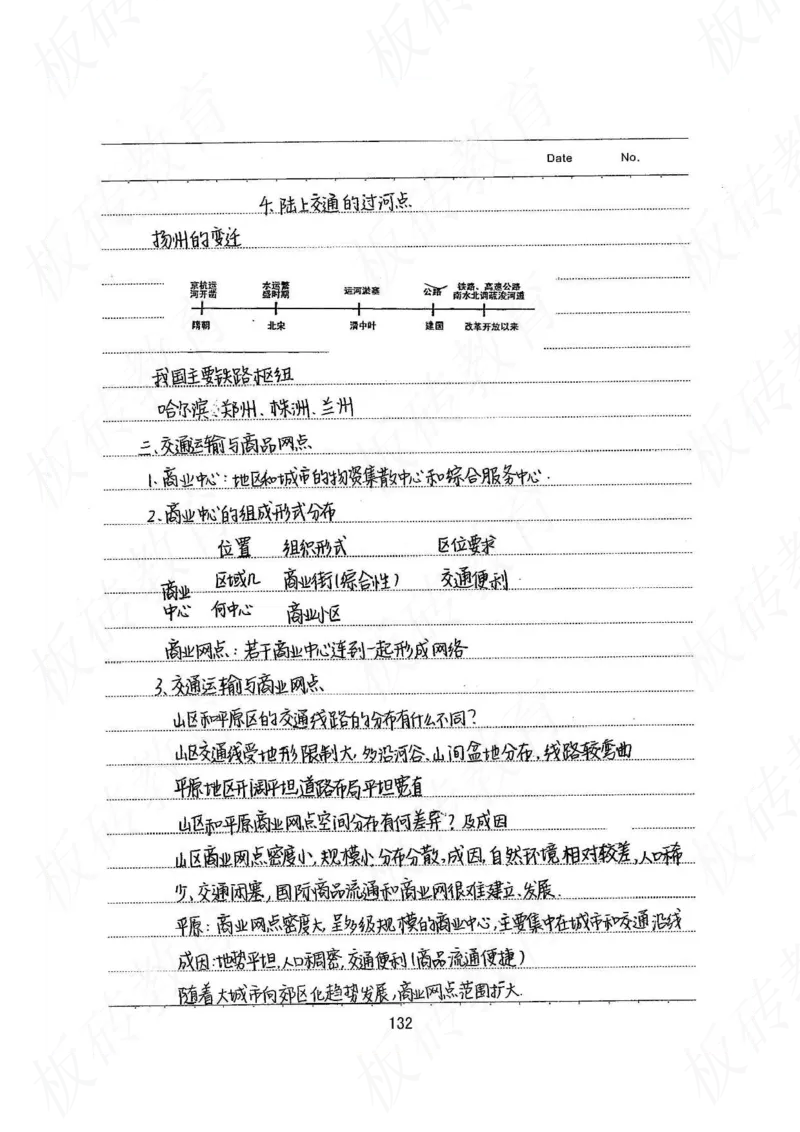 Date No.
4. 陆上交通的过河点
扬州的变迁
京杭运河开凿 水运繁盛时期 运河淤塞 公路 铁路、高速公路 南水北调疏浚河道
隋朝 北宋 清中叶 建国 改革开放以来
我国主要铁路枢纽
哈尔滨、郑州、株洲、兰州
二、交通运输与商品网点
1、商业中心：地区和城市的物资集散中心和综合服务中心.
2、商业中心的组成形式分布
位置 组织形式 区位要求
商业中心 区域几何中心 商业街(综合性) 交通便利
商业小区
商业网点：若干商业中心连到一起形成网络
3、交通运输与商业网点
山区和平原区的交通线路的分布有什么不同？
山区交通线受地形限制大，多沿河谷、山间盆地分布，线路较弯曲
平原地区开阔平坦道路布局平坦宽直
山区和平原商业网点空间分布有何差异？及成因
山区商业网点密度小，规模小分布分散，成因，自然环境相对较差，人口稀
少、交通闭塞，国际商品流通和商业网很难建立、发展.
平原：商业网点密度大，呈多级规模的商业中心，主要集中在城市和交通沿线
成因：地势平坦，人口稠密，交通便利(商品流通便捷)
随着大城市向郊区化趋势发展，商业网点范围扩大.
132
板砖教育